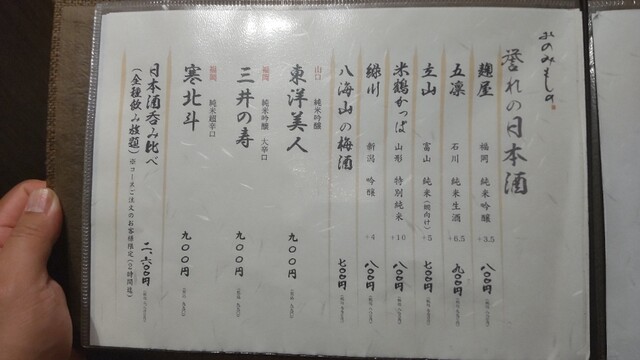 おのみもの
誉れの日本酒
麹屋 福岡 純米吟醸 +3.5 八〇〇円
五凛 石川 純米生酒 +6.5 九〇〇円
立山 富山 純米(燗向け) +5 七〇〇円
米鶴かっぱ 山形 特別純米 +10 八〇〇円
緑川 新潟 吟醸 +4 八〇〇円
八海山の梅酒 七〇〇円
山口 純米吟醸
東洋美人 九〇〇円
福岡 純米吟醸 大辛口
三井の寿 九〇〇円
福岡 純米超辛口
寒北斗 九〇〇円
日本酒呑み比べ 二、六〇〇円
(全種飲み放題)※コースご注文のお客様限定(2時間後)